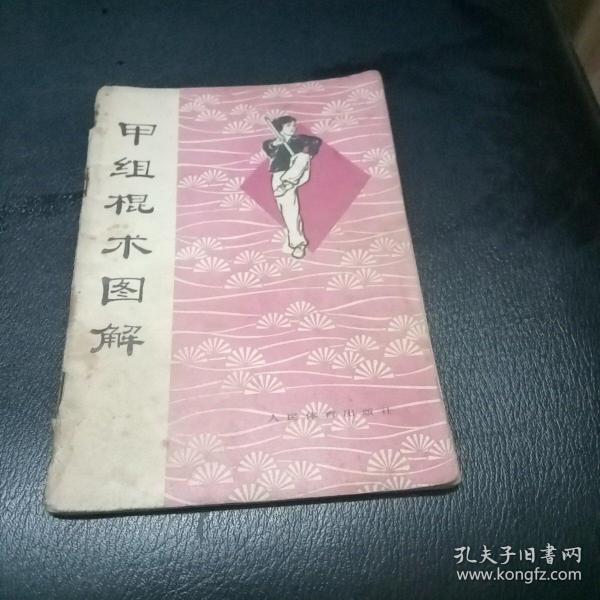 甲组棍术图解
人民体育出版社
孔夫子旧書网
www.kongfz.com